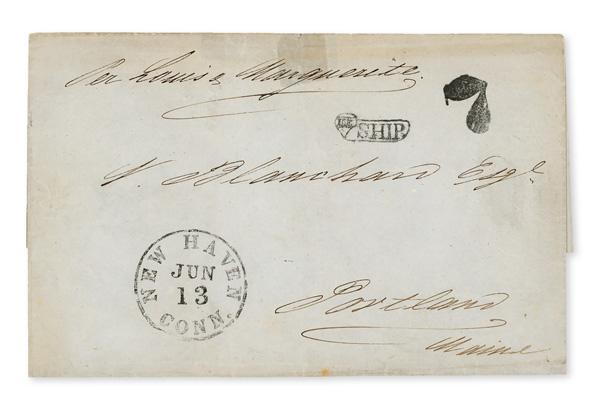 Per Louis & Marguerite.
SHIP
7
N. Blanchard Esqr.
NEW HAVEN
JUN
13
CONN.
Portland
Maine